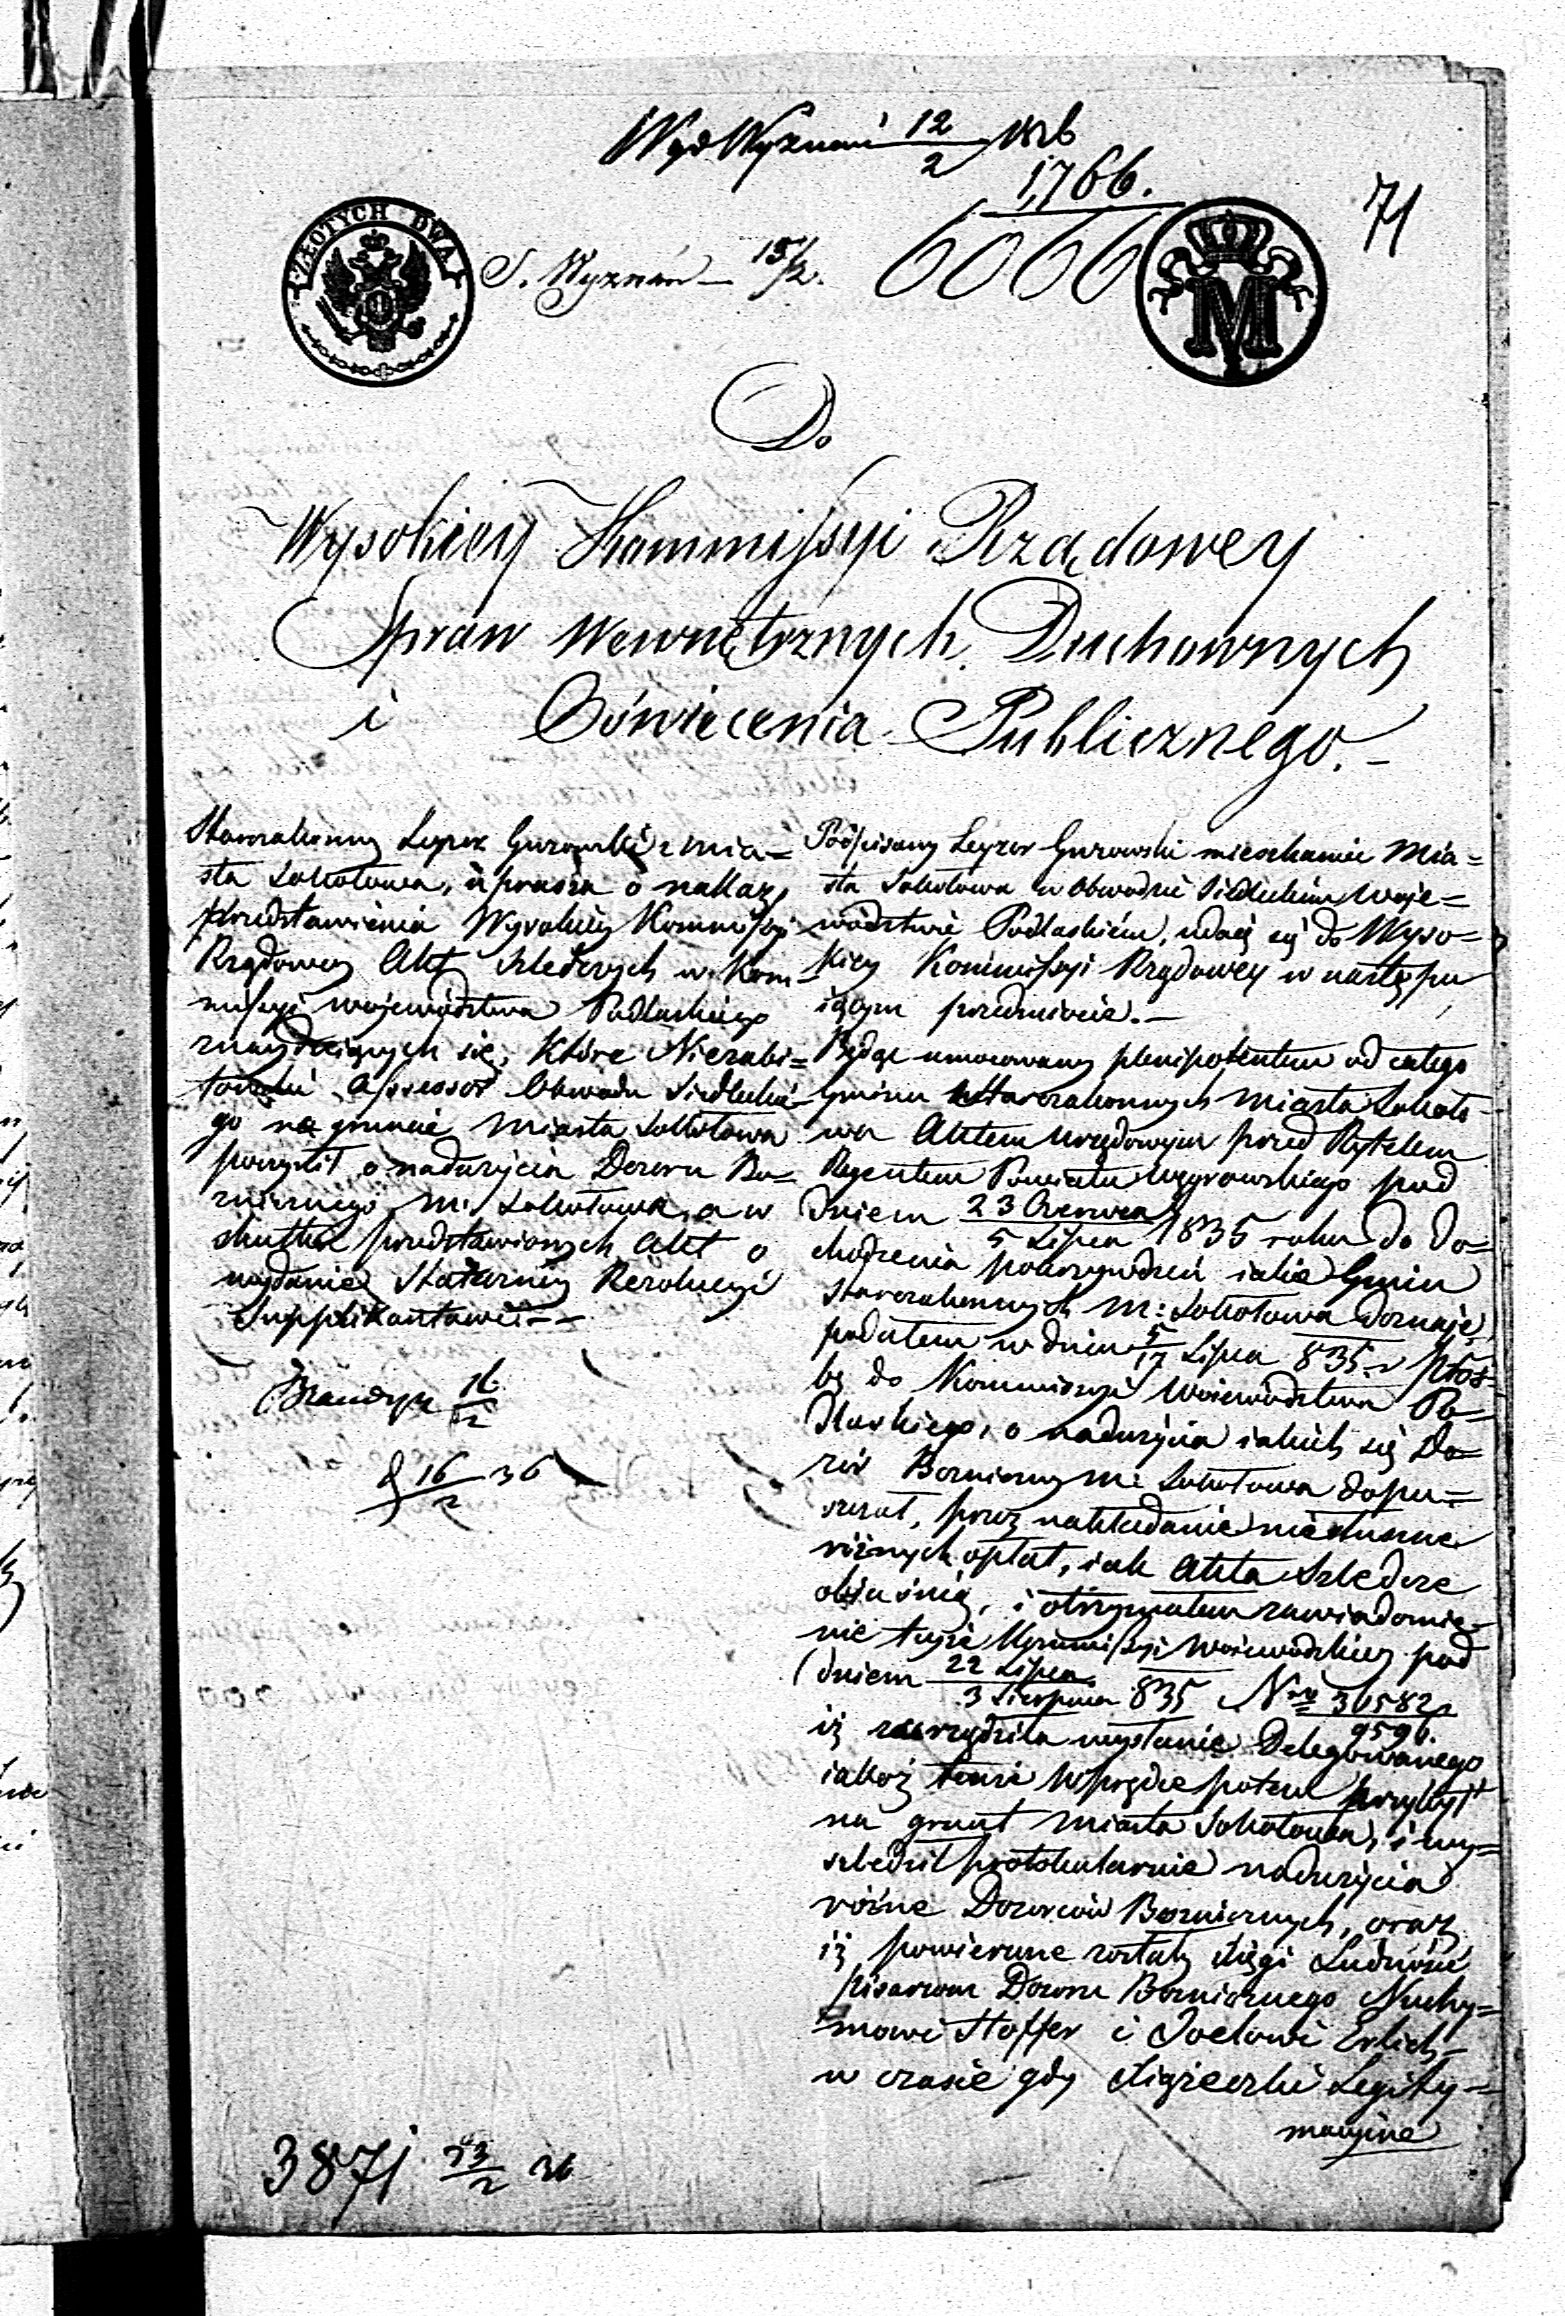 Wyd Wyznań 12/2 1836
1,766.
71
ZŁOTYCH DWA
S. Wyznań — 15/2.
6066
M
Do
Wysokiey Kommissyi Rządowey
Spraw Wewnętrznych Duchownych
i Oświecenia Publicznego. –
Starozakonny Leyzor Gurowski z mia=
sta Sokołowa, uprasza o nakaz
przedstawienia Wysokiey Kommissyi
Rządowey Akt Szledczych w Kom=
missyi Województwa Podlaskiego
znayduiących się, które Niezabi=
towski Assessor Obwodu Siedleckie=
go na gruncie Miasta Sokołowa
poczynił o nadużycia Dozoru Bo=
żnicznego m. Sokołowa, a w
skutku przedstawionych Akt o
wydanie Statecznéy Rezolucyi
Supplikantowi –
16/2
16/2 36
3871 23/2 36
Podpisany Leyzor Gurowski mieszkaniec Mia=
sta Sokołowa w Obwodzie Siedleckim Woje=
wództwie Podlaskiém, udaię się do Wyso=
kiey Kommissyi Rządowey w następu
iącym przedmiocie. –
Będąc umocowany plenipotentem od całego
Gminu Starozakonnych Miasta Sokoło=
wa Aktem Urzędowym przed Rytelem
Regentem Powiatu Węgrowskiego pod
dniem 23 Czerwca/5 Lipca 1835 roku do do=
chodzenia pokrzywdzeń iakie Gmin
Starozakonnych m: Sokołowa doznaje,
podałem w dniu 5/17 Lipca 835 r Proź=
bę do Kommissyi Województwa Po=
dlaskiego, o nadużycia iakich się Do=
zór Bożniczny m: Sokołowa dopu=
szczał, przez nakładanie niesłuszne
różnych opłat, iak Akta Szledcze
obiaśnią, i otrzymałem zawiadomie=
nie teyże Kommissyi Woiewódzkiey pod
dniem 22 Lipca/3 Sierpnia 835 Nro 36582/9596
iż zarządziła wysłanie Delegowanego
iakoż tenże wprędce potem przybył
na grunt Miasta Sokołowa, i wy=
szledził protokularnie nadużycia
różne Dozorców Bożnicznych, oraz
iż powierzone zostały xięgi Ludności
pisarzom Dozoru Bożnicznego Nuchy=
mowi Hoffer i Joelowi Erlich –
w czasie gdy Xiążeczki Legity=
macyine